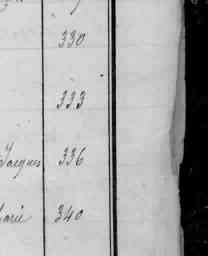 330
333
Jacques 336
Marie 340